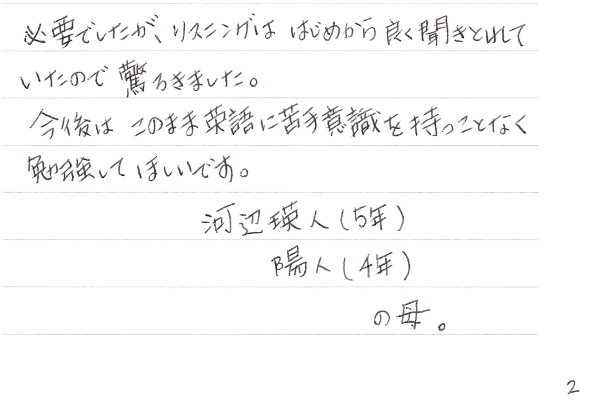 必要でしたが、リスニングは はじめから良く聞きとれて
いたので驚ろきました。
今後は このまま英語に苦手意識を持つことなく
勉強して ほしいです。
河辺瑛人(5年)
陽人(4年)
の母。
2